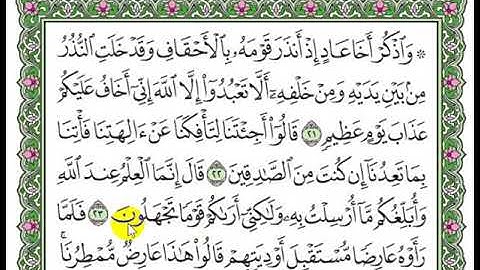 ۞ وَٱذْكُرْ أَخَا عَادٍ إِذْ أَنذَرَ قَوْمَهُۥ بِٱلْأَحْقَافِ وَقَدْ خَلَتِ ٱلنُّذُرُ
مِنۢ بَيْنِ يَدَيْهِ وَمِنْ خَلْفِهِۦٓ أَلَّا تَعْبُدُوٓا۟ إِلَّا ٱللَّهَ إِنِّىٓ أَخَافُ عَلَيْكُمْ
عَذَابَ يَوْمٍ عَظِيمٍ ٢١ قَالُوٓا۟ أَجِئْتَنَا لِتَأْفِكَنَا عَنْ ءَالِهَتِنَا فَأْتِنَا
بِمَا تَعِدُنَآ إِن كُنتَ مِنَ ٱلصَّٰدِقِينَ ٢٢ قَالَ إِنَّمَا ٱلْعِلْمُ عِندَ ٱللَّهِ
وَأُبَلِّغُكُم مَّآ أُرْسِلْتُ بِهِۦ وَلَٰكِنِّىٓ أَرَىٰكُمْ قَوْمًا تَجْهَلُونَ ٢٣ فَلَمَّا
رَأَوْهُ عَارِضًا مُّسْتَقْبِلَ أَوْدِيَتِهِمْ قَالُوا۟ هَٰذَا عَارِضٌ مُّمْطِرُنَا ۚ